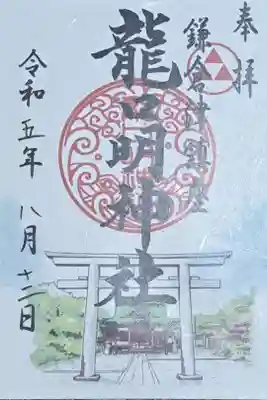 奉拝
鎌倉津鎮座
龍口明神社
令和五年 八月十二日